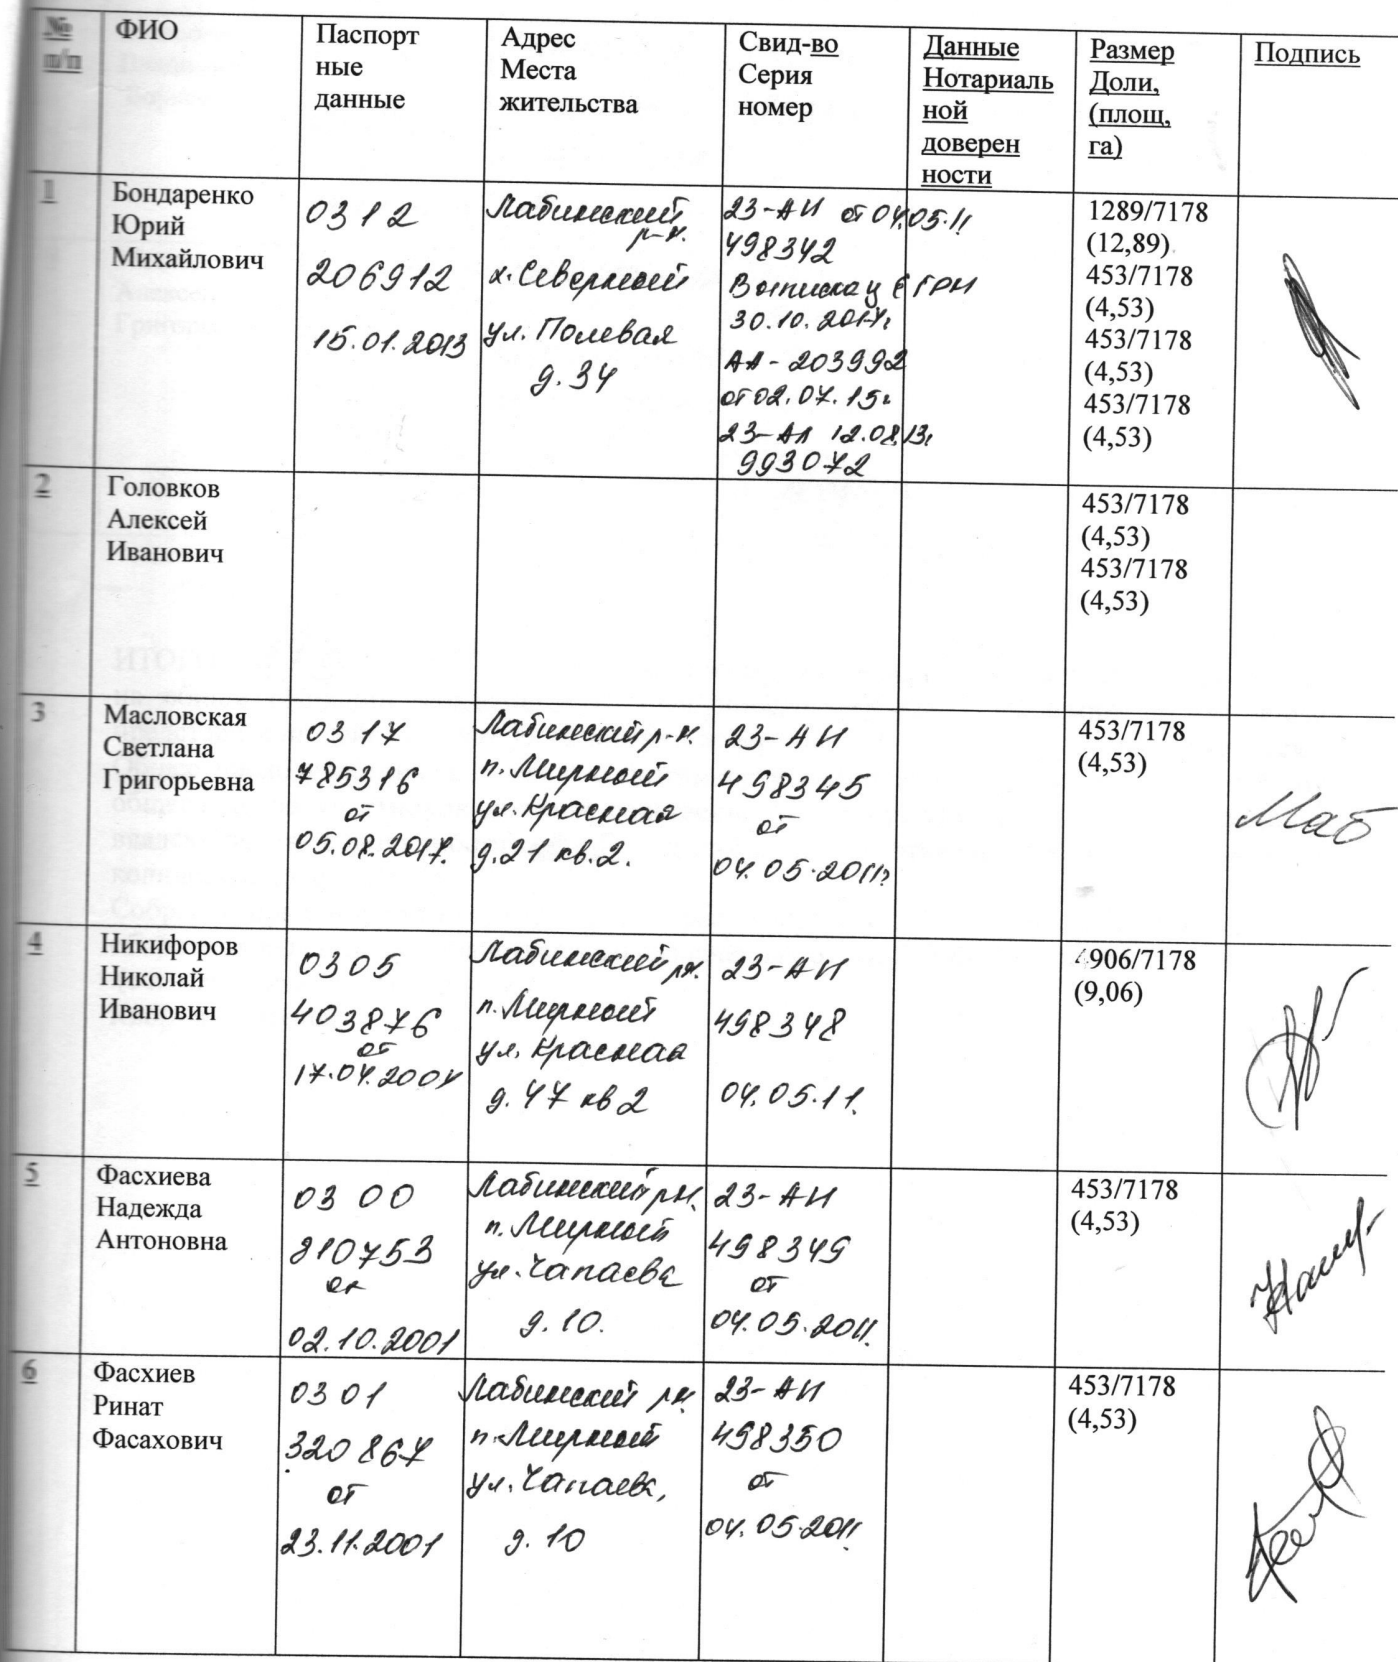 №
п/п
ФИО
Паспорт
ные
данные
Адрес
Места
жительства
Свид-во
Серия
номер
Данные
Нотариаль
ной
доверен
ности
Размер
Доли,
(площ,
га)
Подпись
1
Бондаренко
Юрий
Михайлович
0312
206912
15.01.2013
Лабинский
р-н.
х. Северный
ул. Полевая
д. 34
23-АИ от 04.05.11
498342
Выписка у ЕГРН
30.10.2017г
АА-203992
от 02.07.15г
23-АЛ 12.08.13г
993072
1289/7178
(12,89)
453/7178
(4,53)
453/7178
(4,53)
453/7178
(4,53)
2
Головков
Алексей
Иванович
453/7178
(4,53)
453/7178
(4,53)
3
Масловская
Светлана
Григорьевна
0317
785316
от
05.08.2017.
Лабинский р-н.
п. Мирной
ул. Красная
д. 21 кв. 2.
23-АИ
498345
от
04.05.2011г
453/7178
(4,53)
Мас
4
Никифоров
Николай
Иванович
0305
403876
от
17.04.2004
Лабинский рн.
п. Мирной
ул. Красная
д. 47 кв 2
23-АИ
498348
04.05.11.
906/7178
(9,06)
5
Фасхиева
Надежда
Антоновна
03 00
810753
от
02.10.2001
Лабинский рн.
п. Мирной
ул. Чапаева
д. 10.
23-АИ
498349
от
04.05.2011.
453/7178
(4,53)
6
Фасхиев
Ринат
Фасахович
0301
320867
от
23.11.2001
Лабинский рн
п. Мирной
ул. Чапаева,
д. 10
23-АИ
498350
от
04.05.2011
453/7178
(4,53)